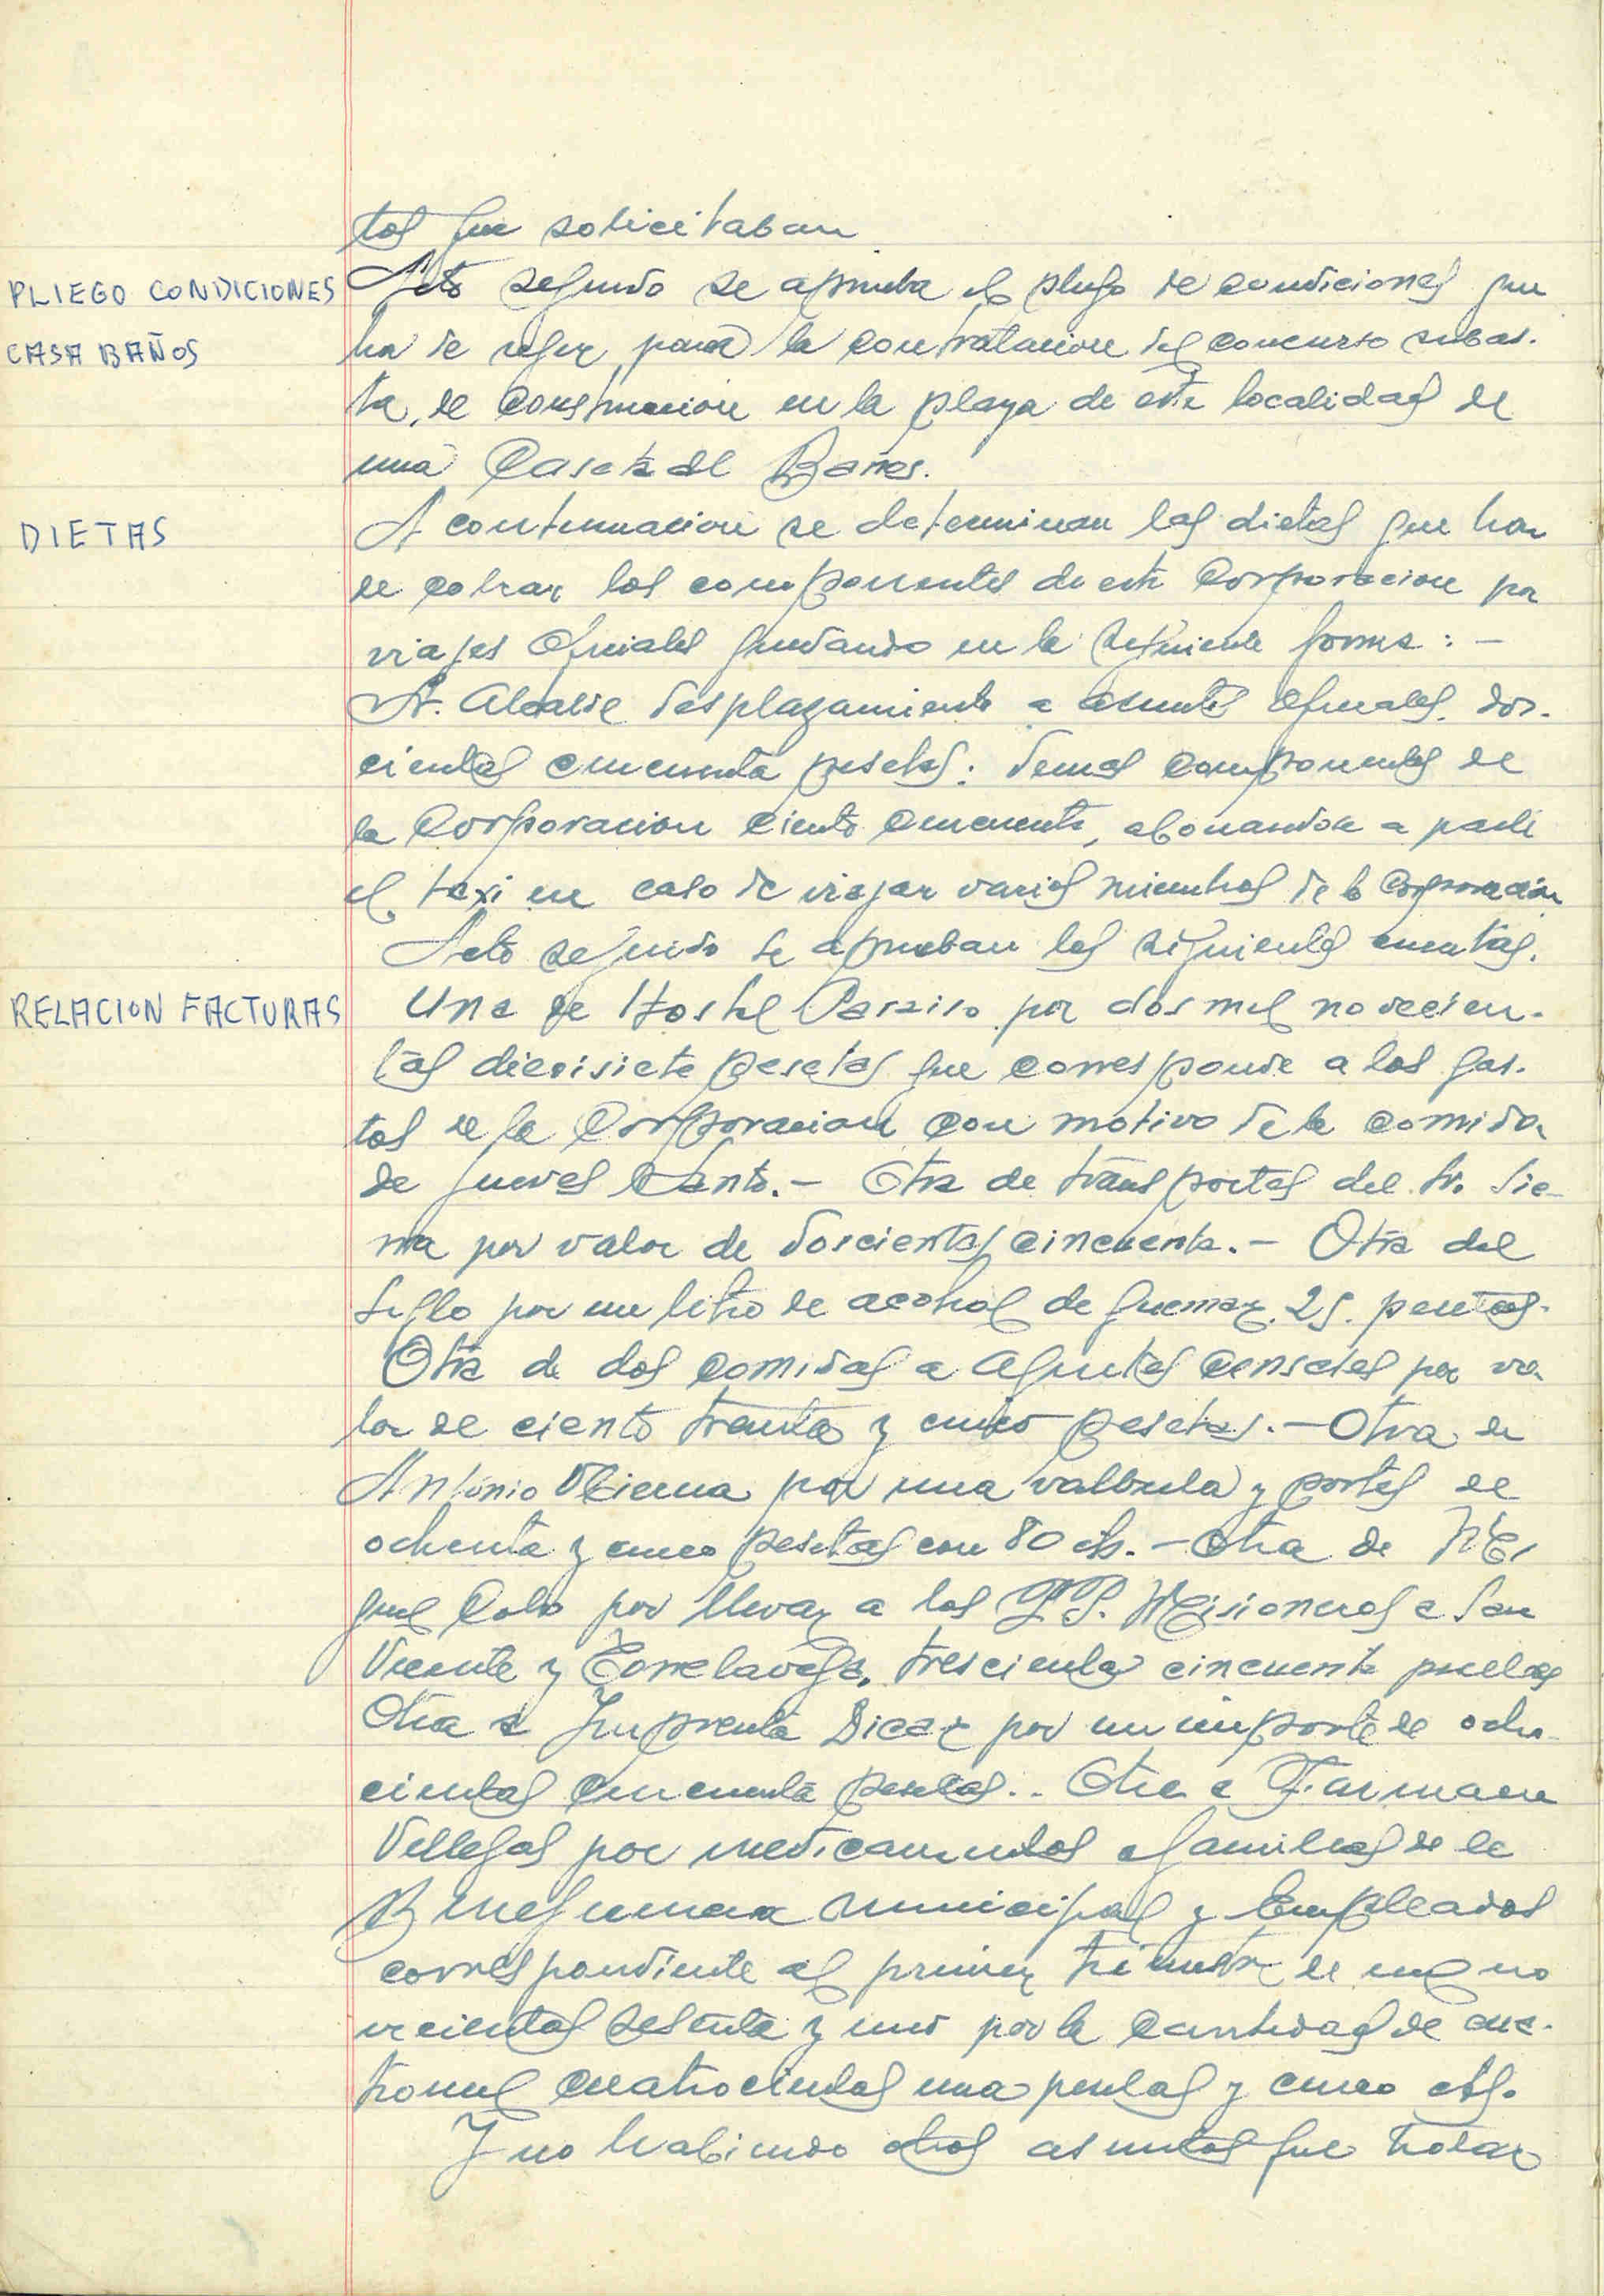 tos que solicitaban
PLIEGO CONDICIONES
CASA BAÑOS
Acto seguido se aprueba el pliego de condiciones que
ha de regir para la contratacion del concurso subas-
ta, de construccion en la playa de esta localidad de
una Caseta de Baños.
DIETAS
A continuacion se determinan las dietas que han
de cobrar los componentes de esta Corporacion por
viajes oficiales quedando en la siguiente forma: -
Sr. Alcalde desplazamiento a asuntos oficiales, dos-
cientas cincuenta pesetas: demas componentes de
la Corporacion ciento cincuenta, abonandose a parte
el taxi en caso de viajar varios miembros de la Corporacion
Acto seguido se aprueban las siguientes cuentas.
RELACION FACTURAS
Una de Hostal Paraiso por dos mil novecien-
tas diecisiete pesetas que corresponde a los gas-
tos de la Corporacion con motivo de la comida
de Jueves Santo.- Otra de transportes del Sr. Sie-
rra por valor de doscientas cincuenta.- Otra del
Sello por un litro de acohol de quemar 25. pesetas-
Otra de dos comidas a Agentes censales por va-
lor de ciento treinta y cinco pesetas.- Otra de
Antonio por una valbula y portes de
ochenta y cinco pesetas con 80 cts.- Otra de Mi-
guel Cobo por llevar a los P.P. Misioneros a San
Vicente y Torrelavega, trescientas cincuenta pesetas
Otra a Imprenta por un importe de ocho-
cientas cincuenta pesetas.. Otra a Farmacia
Villegas por medicamentos a familias de la
Beneficencia municipal y Empleados
correspondiente al primer trimestre de mil no
vecientos sesenta y uno por la cantidad de cua-
tromil cuatrocientas una pesetas y cinco cts.
Y no habiendo otros asuntos que tratar